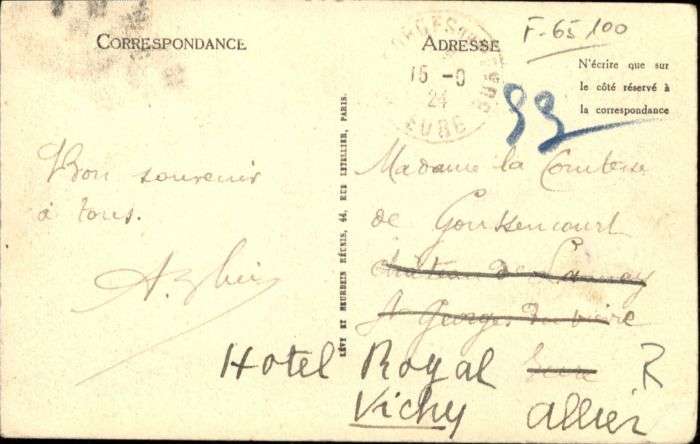 CORRESPONDANCE
ADRESSE
F-65 100
N'écrire que sur
le côté réservé à
la correspondance
15 -9
24
EURE
Bon souvenir
à tous.
LÉVY ET NEURDEIN RÉUNIS, 44, RUE LETELLIER, PARIS.
Madame la Comtesse
de Goussencourt
château de Launay
St Georges du vièvre
Eure
Hotel Royal R
Vichy Allier